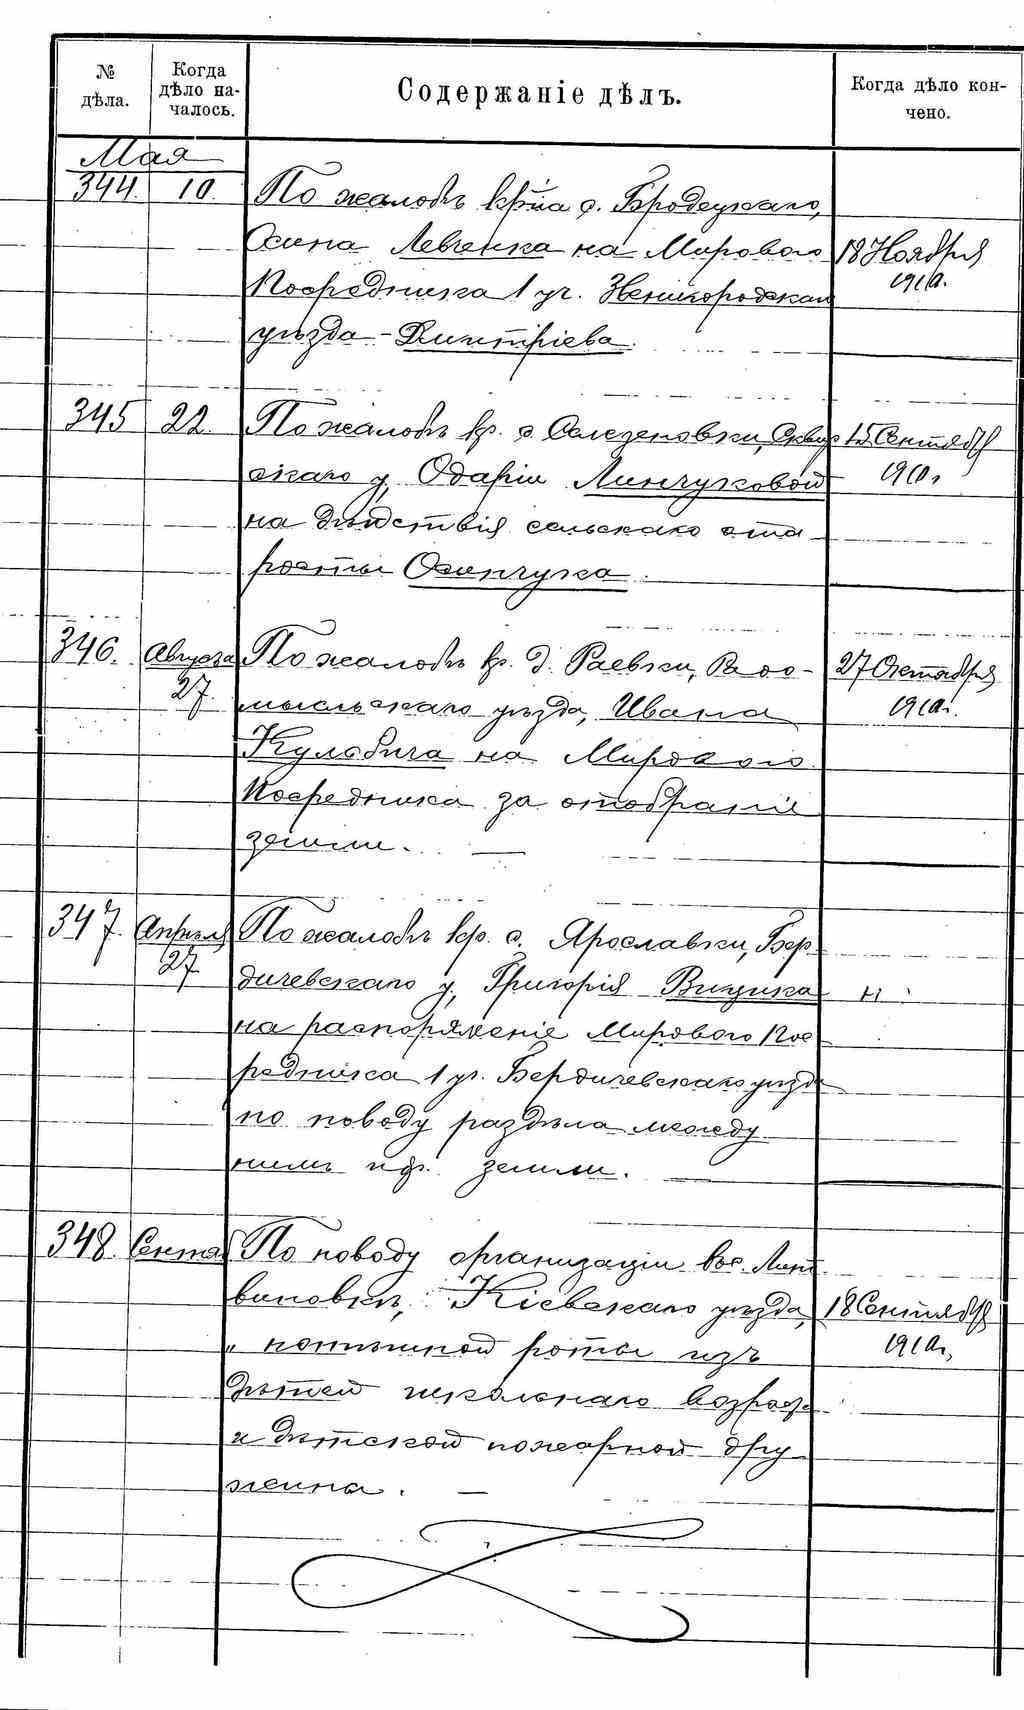 № дѣла.
Когда дѣло на-
чалось.
Содержаніе дѣлъ.
Когда дѣло кон-
чено.
Мая
344. 10. По жалобѣ кр-на с. Бродецкаго,
Осипа Левченка на Мирового
Посредника 1 уч. Звенигородскаго
уѣзда - Дмитріева.
18 Ноября
1910г.
345 22. По жалобѣ кр. с. Селезеновки, Сквир
скаго у, Одаріи Линчуковой
на дѣйствія сельскаго ста-
росты Осипчука.
15 Сентября
1910г
346. Августа
27.
По жалобѣ кр. д. Раевки, Радо-
мысльскаго уѣзда, Ивана
Кульбича на Мирового
Посредника за отобраніе
земли. —
27 Октября
1910г.
347. Апрѣля
27
По жалобѣ кр. с. Ярославки, Бер-
дичевскаго у, Григорія
на распоряженіе Мирового Пос
редника 1 уч. Бердичевскаго уѣзда
по поводу раздѣла между
ними и др. земли.
348. Сентя
По поводу организаціи въ с. Лит
виновкѣ, Кіевскаго уѣзда,
„ потѣшной роты изъ
дѣтей школьнаго возраста
и дѣтской пожарной дру
жины. —
18 Сентября
1910г,